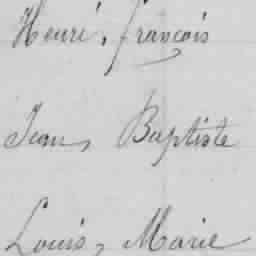 Henri, François
Jean, Baptiste
Louis, Marie